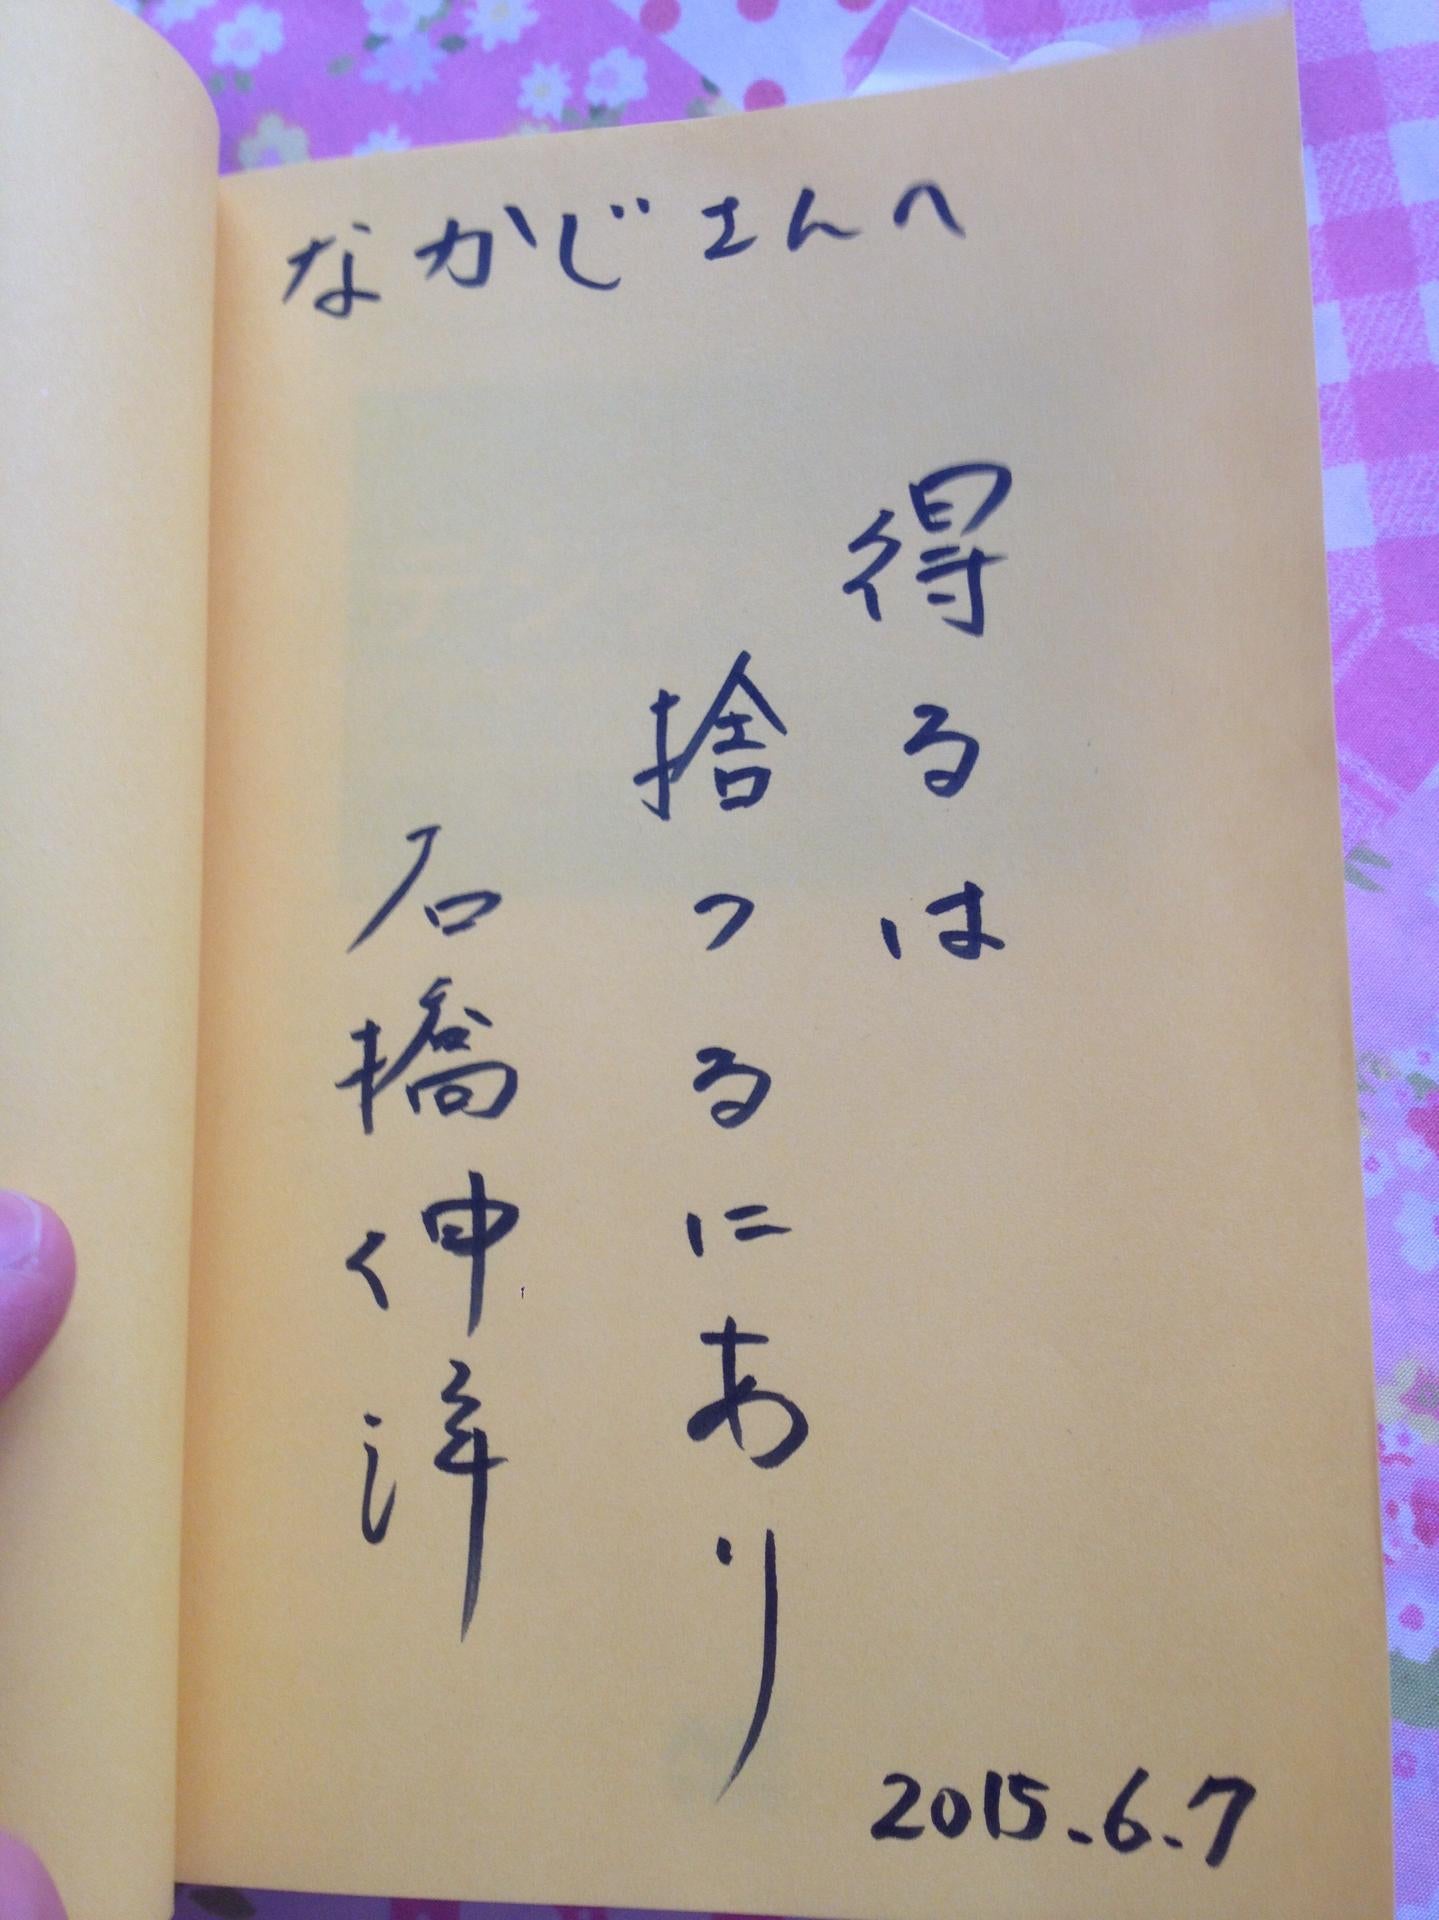 なかじさんへ
得るは
捨つるにあり
石橋伸洋
2015.6.7